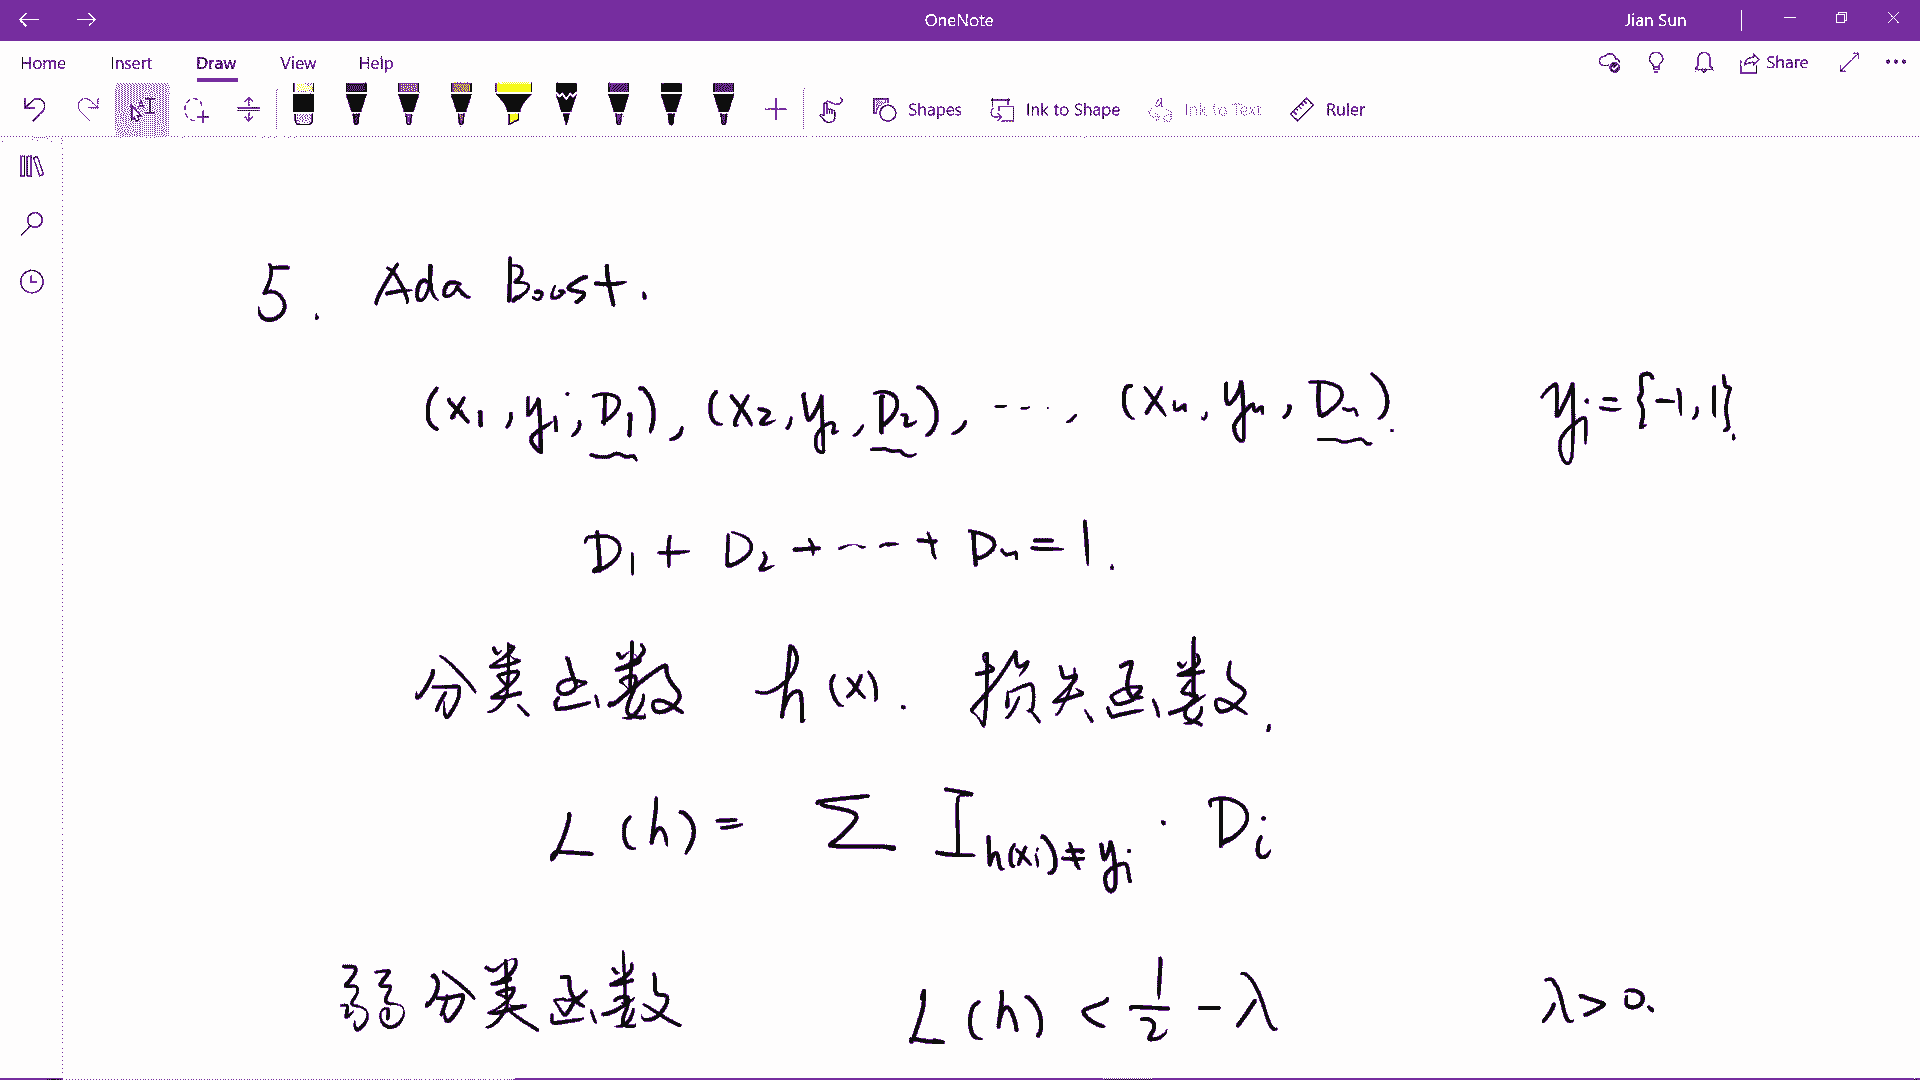 OneNote
Jian Sun
Home Insert Draw View Help
Share
Shapes Ink to Shape Ink to Text Ruler
5. Ada Boost.
(x₁, y₁, D₁), (x₂, y₂, D₂), ---, (xₙ, yₙ, Dₙ). yᵢ = {-1, 1}.
D₁ + D₂ + --- + Dₙ = 1.
分类函数 h(x). 损失函数.
L(h) = Σ I_{h(xᵢ)≠yᵢ} · Dᵢ
弱分类函数 L(h) < 1/2 - λ λ > 0.